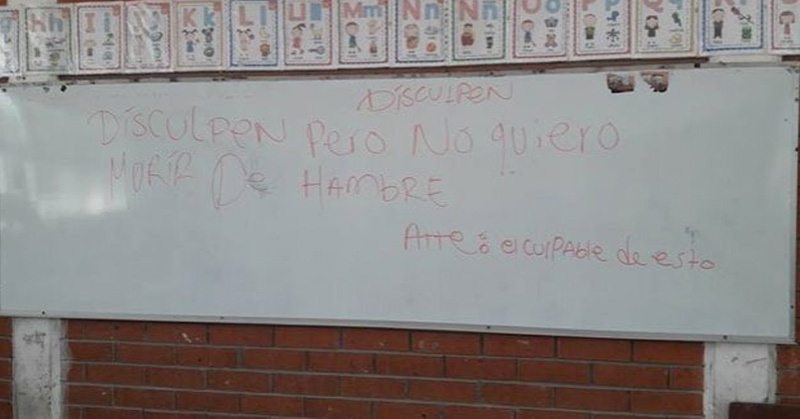 hh Ii Jj Kk Ll Ll Mm Nn Ññ Oo Pp Qq
DISCULPEN
DISCULPEN PerO NO quiero
MORIR De HAMBRE
Atte: el culpable de esto